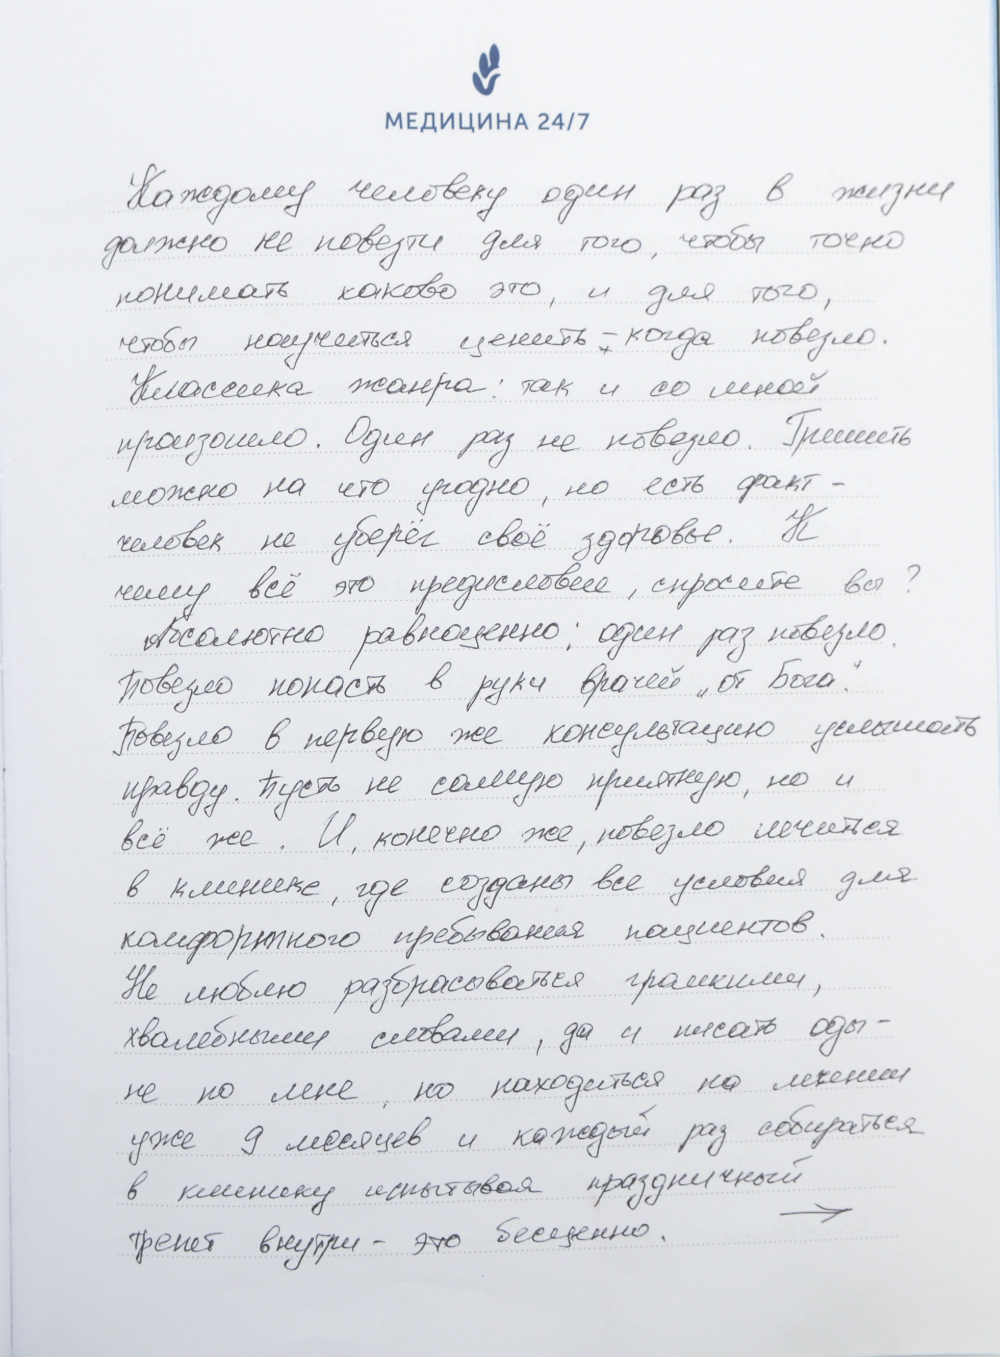 МЕДИЦИНА 24/7
Каждому человеку один раз в жизни
должно не повезти для того, чтобы точно
понимать каково это, и для того,
чтобы научиться ценить - когда повезло.
Классика жанра: так и со мной
произошло. Один раз не повезло. Грешить
можно на что угодно, но есть факт -
человек не уберёг своё здоровье. К
чему всё это предисловие, спросите вы?
Абсолютно равноценно: один раз повезло.
Повезло попасть в руки врачей „от Бога".
Повезло в первую же консультацию услышать
правду. Пусть не самую приятную, но и
всё же. И, конечно же, повезло лечиться
в клинике, где созданы все условия для
комфортного пребывания пациентов.
Не люблю разбрасываться громкими,
хвалебными словами, да и писать оды -
не по мне, но находиться на лечении
уже 9 месяцев и каждый раз собираться
в клинику испытывая праздничный
трепет внутри - это бесценно. →